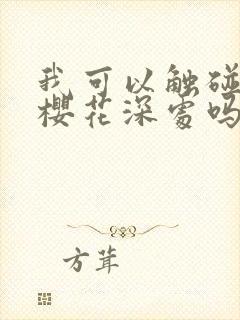 我可以触碰
樱花深处吗
方茸